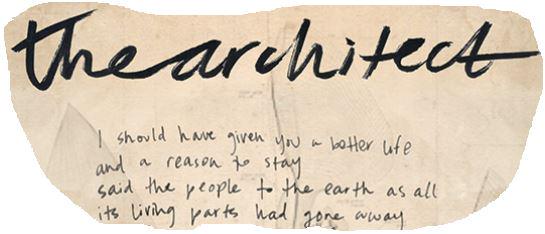 the architect
I should have given you a better life
and a reason to stay
said the people to the earth as all
its living parts had gone away